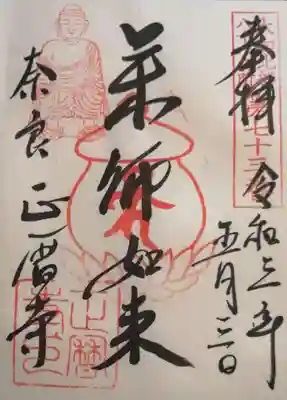 奉拝 令和三年
五月三日
七十三
薬師如来
奈良 正暦寺